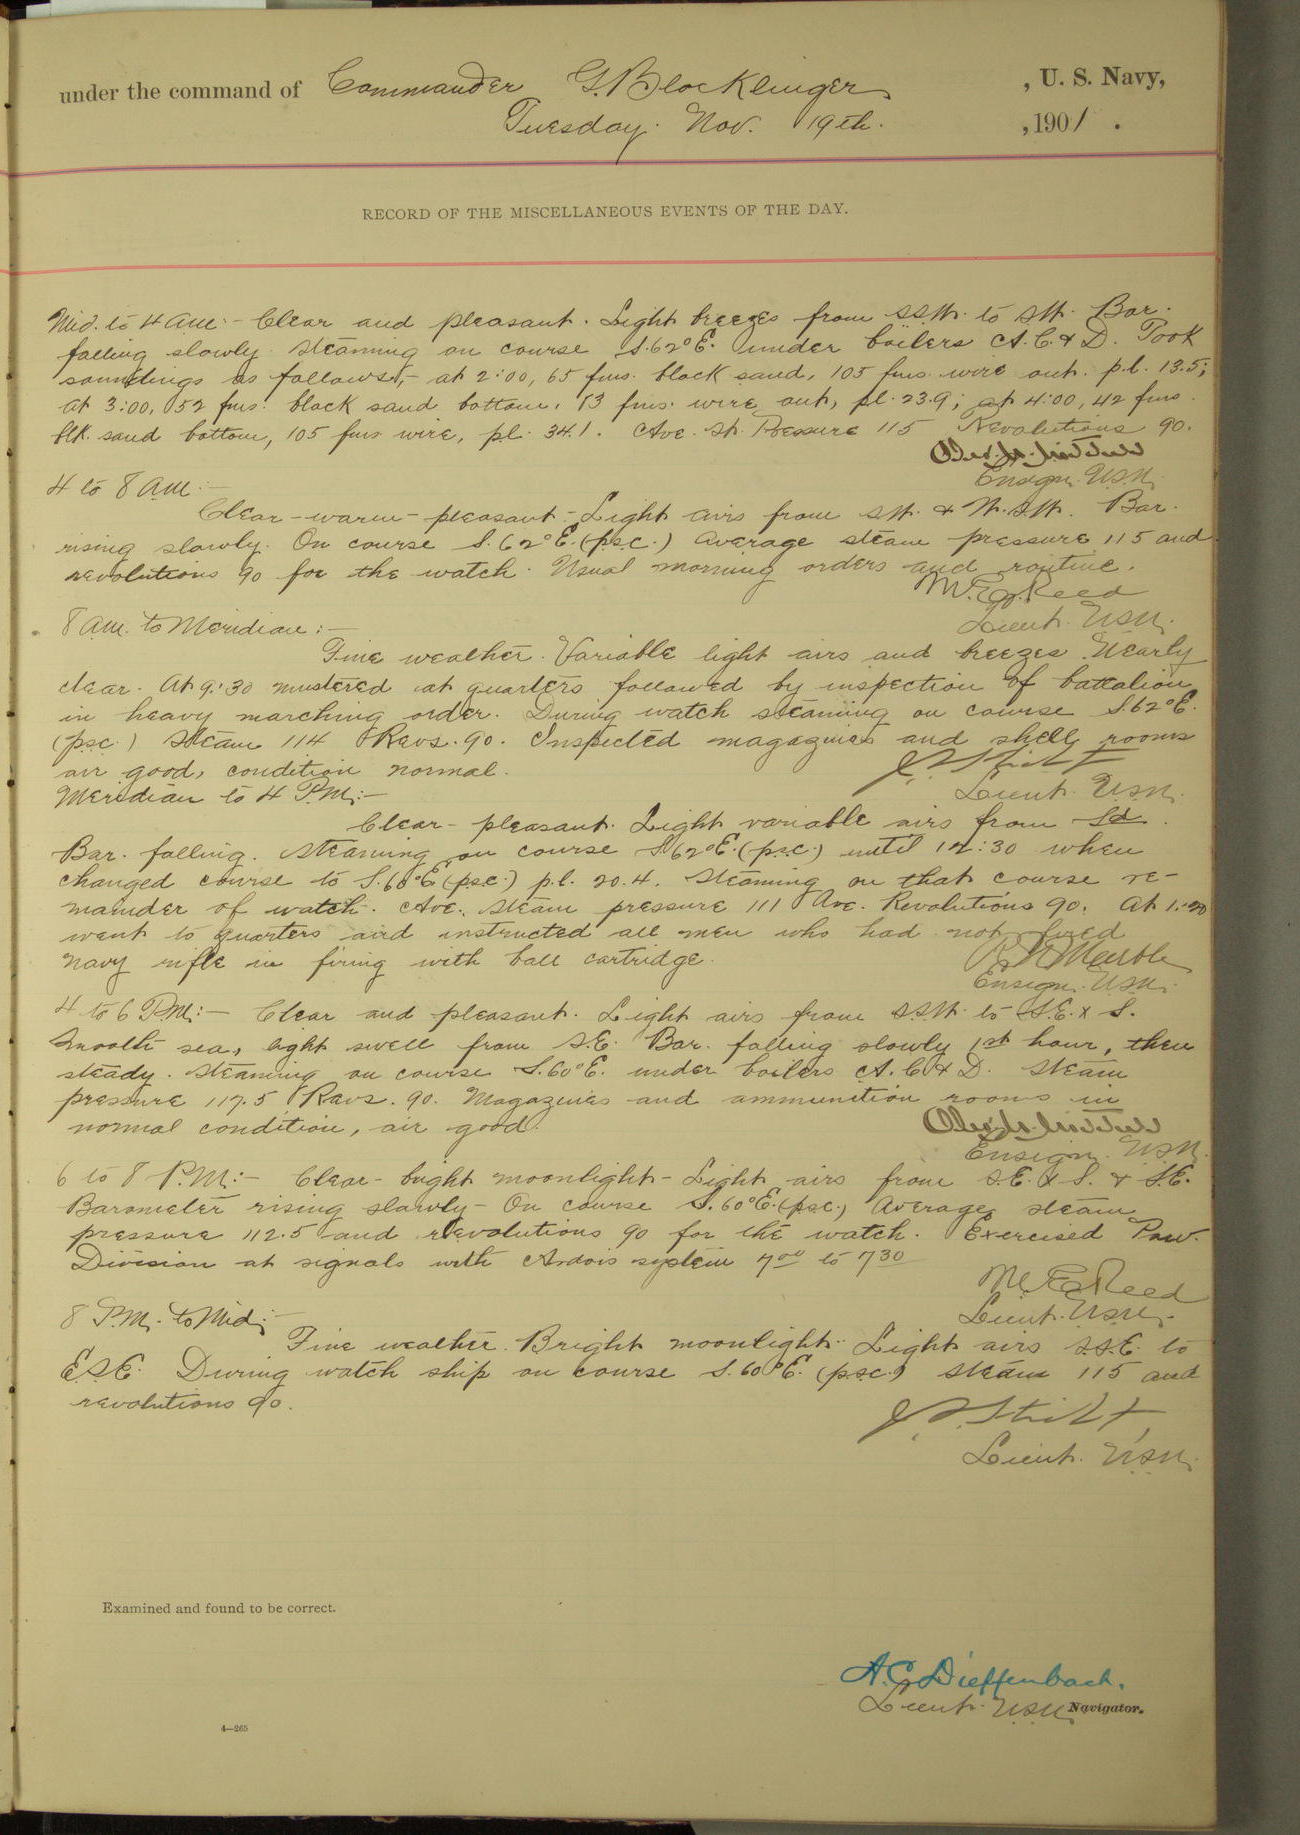 under the command of Commander G. Blocklinger, , U. S. Navy,
Tuesday. Nov. 19th. , 1901 .
RECORD OF THE MISCELLANEOUS EVENTS OF THE DAY.
Mid. to 4 a.m:- Clear and pleasant. Light breezes from SSW. to SW. Bar.
falling slowly. Steaming on course S.62°E. under boilers A. C. & D. Took
soundings as follows,- at 2:00, 65 fms. black sand, 105 fms. wire out. p.l. 13.5;
at 3:00, 52 fms. black sand bottom, 13 fms. wire out, pl. 23.9; at 4:00, 42 fms.
blk. sand bottom, 105 fms wire, p.l. 34.1. Ave. St. Pressure 115 Revolutions 90.
Ensign. U.S.N.
4 to 8 a.m:-
Clear-warm-pleasant-Light airs from SW. & W.S.W. Bar.
rising slowly. On course S.62°E.(p.s.c.) Average steam pressure 115 and
revolutions 90 for the watch. Usual morning orders and routine.
M. E. Reed
Lieut. U.S.N.
8 a.m. to Meridian:-
Fine weather. Variable light airs and breezes. Nearly
clear. At 9:30 mustered at quarters followed by inspection of battalion
in heavy marching order. During watch steaming on course S.62°E.
(p.s.c.) Steam 114 Revs. 90. Inspected magazines and shell rooms
air good, condition normal.
Lieut. U.S.N.
Meridian to 4 P.M:-
Clear- pleasant. Light variable airs from Sd.
Bar. falling. Steaming on course S62°E.(p.s.c.) until 12:30 when
changed course to S.60°E.(p.s.c.) p.l. 20.4. Steaming on that course re-
mainder of watch. Ave. steam pressure 111 Ave. Revolutions 90. At 1:20
went to quarters and instructed all men who had not fired
navy rifle in firing with ball cartridge.
Ensign. U.S.N.
4 to 6 P.M:- Clear and pleasant. Light airs from SSW. to S.E. x S.
Smooth sea, light swell from S.E. Bar. falling slowly 1st hour, then
steady. Steaming on course S.60°E. under boilers A. C & D. Steam
pressure 117.5 Revs. 90. Magazines and ammunition rooms in
normal condition, air good.
Ensign. U.S.N.
6 to 8 P.M:- Clear- bright moonlight- Light airs from S.E. x S. & S.E.
Barometer rising slowly- On course S.60°E.(p.s.c.) Average steam
pressure 112.5 and revolutions 90 for the watch. Exercised Pow.
Division at signals with Ardois system 7 00 to 7 30
M. E. Reed
Lieut. U.S.N.
8 P.M. to Mid:-
Fine weather. Bright moonlight. Light airs S.S.E. to
E.S.E. During watch ship on course S.60°E. (p.s.c.) Steam 115 and
revolutions 90.
Lieut. U.S.N.
Examined and found to be correct.
A. C. Dieffenbach.
Lieut. U.S.N. Navigator.
4—265